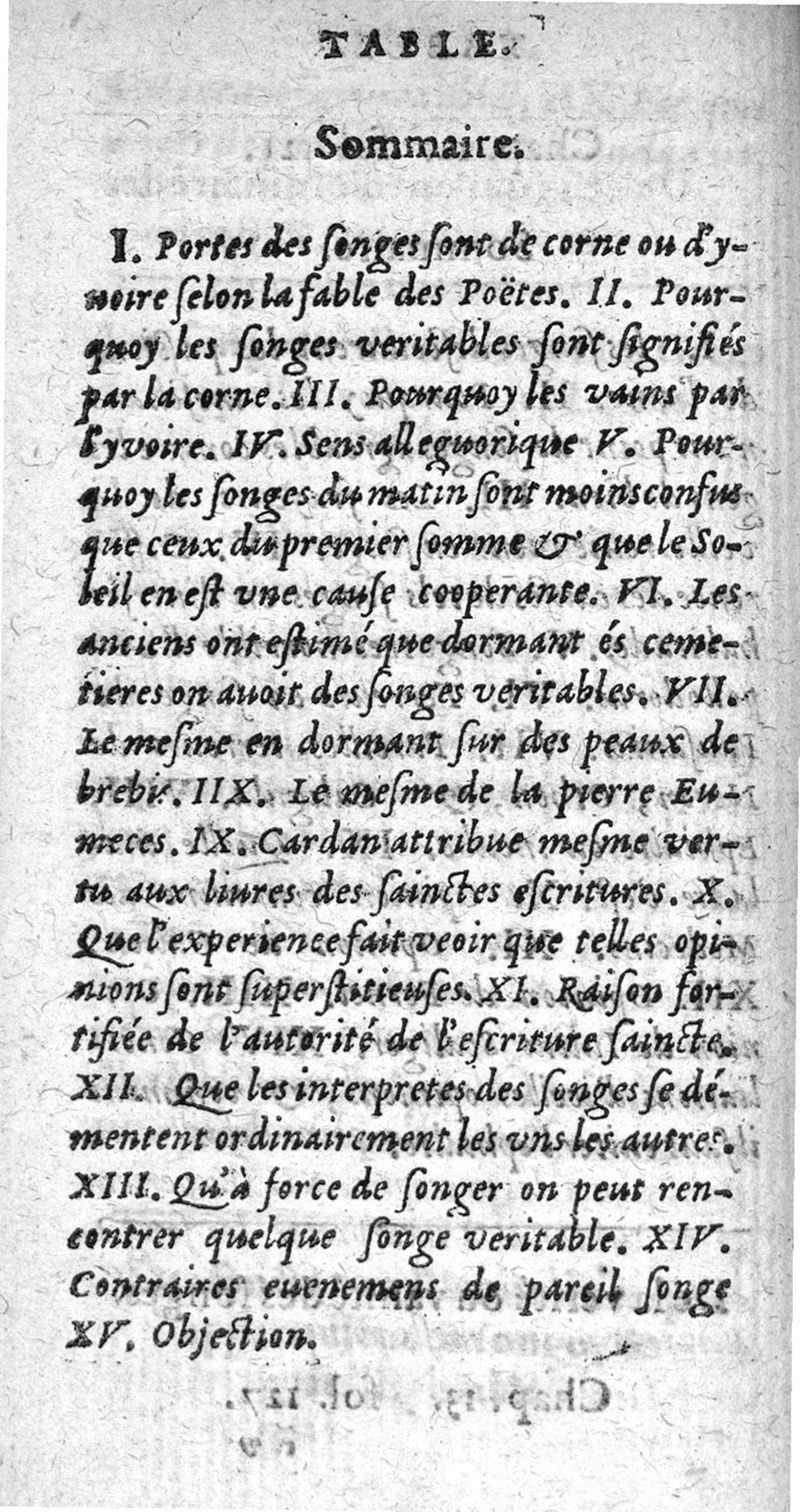 TABLE.
Sommaire.
I. Portes des ſonges ſont de corne ou d'y-
uoire ſelon la fable des Poëtes. II. Pour-
quoy les ſonges veritables ſont ſignifiés
par la corne. III. Pourquoy les vains par
l'yvoire. IV. Sens alleguorique V. Pour-
quoy les ſonges du matin ſont moins confus
que ceux du premier ſomme & que le So-
leil en eſt vne cauſe cooperante. VI. Les
anciens ont eſtimé que dormant és ceme-
tieres on auoit des ſonges veritables. VII.
Le meſme en dormant ſur des peaux de
brebis. IIX. Le meſme de la pierre Eu-
meces. IX. Cardan attribue meſme ver-
tu aux liures des ſainctes eſcritures. X.
Que l'experience fait veoir que telles opi-
nions ſont ſuperſtitieuſes. XI. Raiſon for-
tifiée de l'autorité de l'eſcriture ſaincte.
XII. Que les interpretes des ſonges ſe dé-
mentent ordinairement les vns les autres.
XIII. Qu'à force de ſonger on peut ren-
contrer quelque ſonge veritable. XIV.
Contraires euenemens de pareil ſonge
XV. Objection.